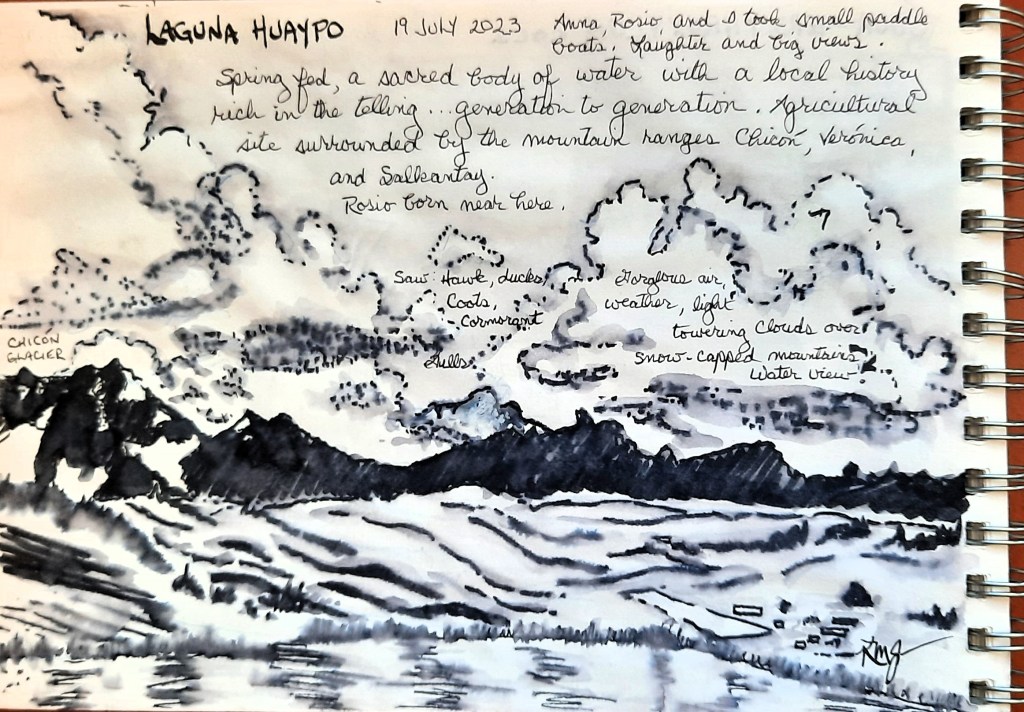 LAGUNA HUAYPO
19 JULY 2023
Anna, Rosio and I took small paddle
boats. Laughter and big views.
Spring fed, a sacred body of water with a local history
rich in the telling... generation to generation. Agricultural
site surrounded by the mountain ranges Chicón, Verónica,
and Salkantay.
Rosio born near here.
Saw: Hawk, ducks,
Coots,
Cormorant
Gulls
Gorglous air,
weather, light
towering clouds over
snow-capped mountains
Water view
CHICÓN
GLACIER
RMG